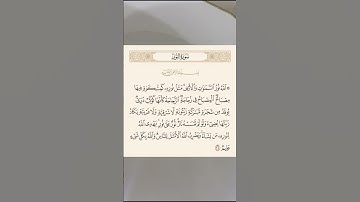 سُورَةُ النُّورِ
بِسْمِ اللَّهِ الرَّحْمَٰنِ الرَّحِيمِ
۞ اللَّهُ نُورُ السَّمَٰوَٰتِ وَالْأَرْضِ مَثَلُ نُورِهِ كَمِشْكَوٰةٍ فِيهَا
مِصْبَاحٌ الْمِصْبَاحُ فِي زُجَاجَةٍ الزُّجَاجَةُ كَأَنَّهَا كَوْكَبٌ دُرِّيٌّ
يُوقَدُ مِن شَجَرَةٍ مُّبَٰرَكَةٍ زَيْتُونَةٍ لَّا شَرْقِيَّةٍ وَلَا غَرْبِيَّةٍ يَكَادُ
زَيْتُهَا يُضِيءُ وَلَوْ لَمْ تَمْسَسْهُ نَارٌ نُّورٌ عَلَىٰ نُورٍ يَهْدِي اللَّهُ
لِنُورِهِ مَن يَشَاءُ وَيَضْرِبُ اللَّهُ الْأَمْثَٰلَ لِلنَّاسِ وَاللَّهُ بِكُلِّ شَيْءٍ
عَلِيمٌ